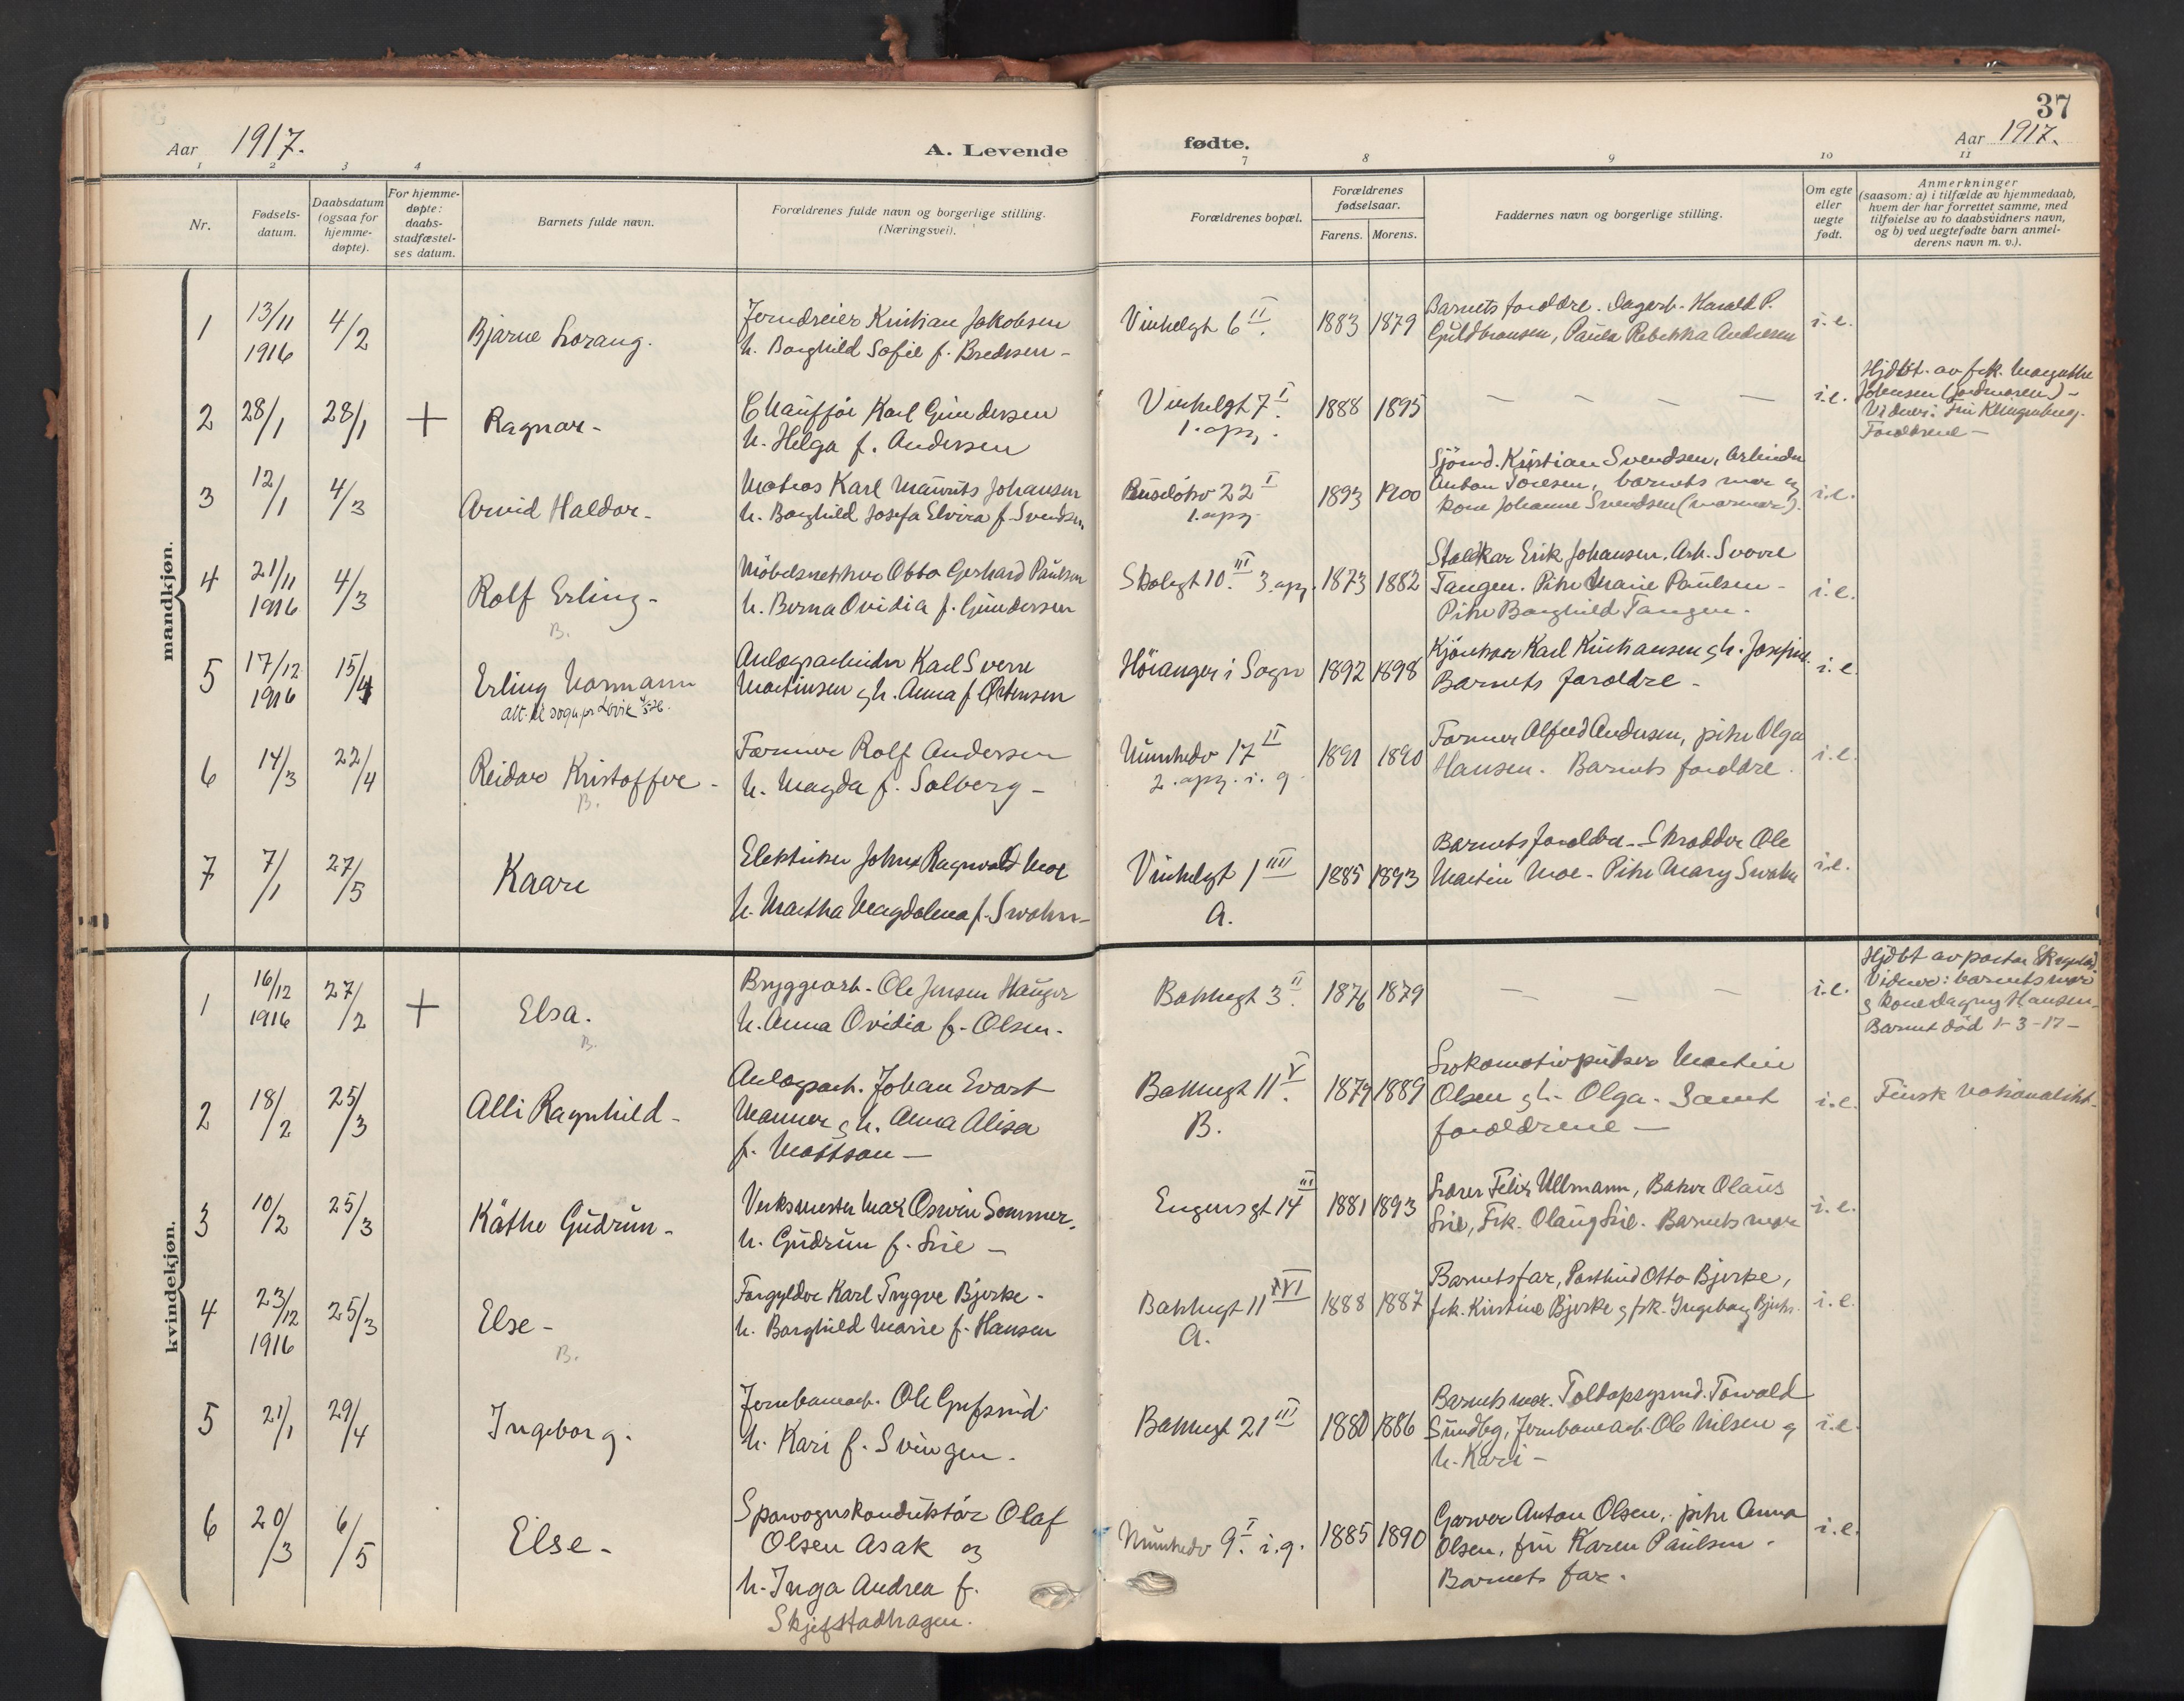 37
Aar 1917.
A. Levende
fødte.
Aar 1917.
1 2 3 4
7 8 9 10 11
Nr.
Fødsels-
datum.
Daabsdatum
(ogsaa for
hjemme-
døpte).
For hjemme-
døpte:
daabs-
stadfæstel-
ses datum.
Barnets fulde navn.
Forældrenes fulde navn og borgerlige stilling.
(Næringsvei).
Forældrenes bopæl.
Forældrenes
fødselsaar.
Farens. Morens.
Faddernes navn og borgerlige stilling.
Om egte
eller
uegte
født.
Anmerkninger
(saasom: a) i tilfælde av hjemmedaab,
hvem der har forrettet samme, med
tilføielse av to daabsvidners navn,
og b) ved uegtefødte barn anmel-
derens navn m. v.).
mandkjøn.
1
13/11
1916
4/2
Bjarne Lorang.
Jerndreier Kristian Jakobsen
h. Borghild Sofie f. Bredesen -
Vinkelgt 6 II.
1883 1879
Barnets forældre. Dagarb. Harald P.
Guldbransen, Paula Rebekka Andresen
i. e.
2
28/1
28/1
+
Ragnar -
Chauffør Karl Gundersen
h. Helga f. Andersen
Vinkelgt 7 I.
1. opg.
1888 1895
— — — —
i. e.
Hjdbt. av frk. Margathe
Johensen (jordmoren) -
Vidner: Fru Klingenberg.
Forældrene -
3
12/1
4/3
Arvid Haldor -
Matros Karl Mauritz Johansen
h. Borghild Josefa Elvira f. Svendsen
Ruseløkv 22 I
1. opg
1893 1900
Sjömd. Kristian Svendsen, Arbeider
Anton Toresen, barnets mor og
kone Johanne Svendsen (mormor).
i. e.
4
21/11
1916
4/3
Rolf Erling -
B.
Möbelsnekker Otto Gerhard Paulsen
h. Berna Ovidia f. Gundersen
Skolegt 10 III. 3. opg.
1873 1882
Staldkar Erik Johansen. Arb. Sverre
Tangen. Pike Marie Paulsen -
Pike Borghild Tangen.
i. e.
5
17/12
1916
15/4
Erling Normann
att. til sogn pr
Anlægsarbeider Karl Sverre
Martinsen g h. Anna f. Ørtensen
Höianger i Sogn
1892 1898
Kjörekar Karl Kristiansen g h. Josefine.
Barnets forældre -
i. e.
6
14/3
22/4
Reidar Kristoffer -
B.
Former Rolf Andersen
h. Magda f. Solberg -
Munkedv 17 II
2. opg. i. g
1891 1890
Former Alfred Andersen, pike Olga
Hansen. Barnets forældre.
i. e.
7
7/1
27/5
Kaare
Elektriker Johns Ragnvald Moe
h. Martha Magdalena f. Swahn -
Vinkelgt 1 III
A.
1885 1893
Barnets forældre - Skrædder Ole
Martin Moe - Pike Mary Swahn
i. e.
kvindekjøn.
1
16/12
1916
27/2
+
Elsa.
B.
Bryggearb. Ole Jensen Hauger
h. Anna Ovidia f. Olsen.
Bakkegt 3 II.
1876 1879
— — —
i. e.
Hjdbt av pastor
Vidner: barnets mor
g kone Dagny Hansen -
Barnet död 1-3-17 -
2
18/2
25/3
Alli Ragnhild -
Anlægsarb. Johan Evart
Manner g h. Anna Alisa
f. Mattsan -
Bakkegt 11 V.
B.
1879 1889
Lokomotivpudser Martin
Olsen g h. Olga. Samt
forældrene -
i. e.
Finsk nationalitet -
3
10/2
25/3
Käthe Gudrun -
Verksmester Max Oswin Sommer.
h. Gudrun f. Lie -
Eugensgt 14 III
1881 1893
Lærer Felix Ullmann, Baker Olaus
Lie, Frk. Olaug Lie. Barnets mor
i. e.
4
23/12
1916
25/3
Else -
B.
Forgylder Karl Trygve Bjerke -
h. Borghild Marie f. Hansen
Bakkegt 11
A.
1888 1887
Barnets far, Postbud Otto Bjerke,
frk. Kirstine Bjerke g frk. Ingeborg Bjerke.
i. e.
5
21/1
29/4
Ingeborg.
Jernbanearb. Ole Gufsrud
h. Kari f. Svingen.
Bakkegt 21 III
1880 1886
Barnets mor. Toldopsynsmd. Torvald
Sundbg, Jernbanearb. Ole Nilsen g
h. Kari -
i. e.
6
20/3
6/5
Else -
Sporvognskonduktör Olaf
Olsen Asak og
h. Inga Andrea f.
Skjefstadhagen.
Munkedv 9 I. i. g.
1885 1890
Garver Anton Olsen, pike Anna
Olsen, fru Karen Paulsen.
Barnets far.
i. e.